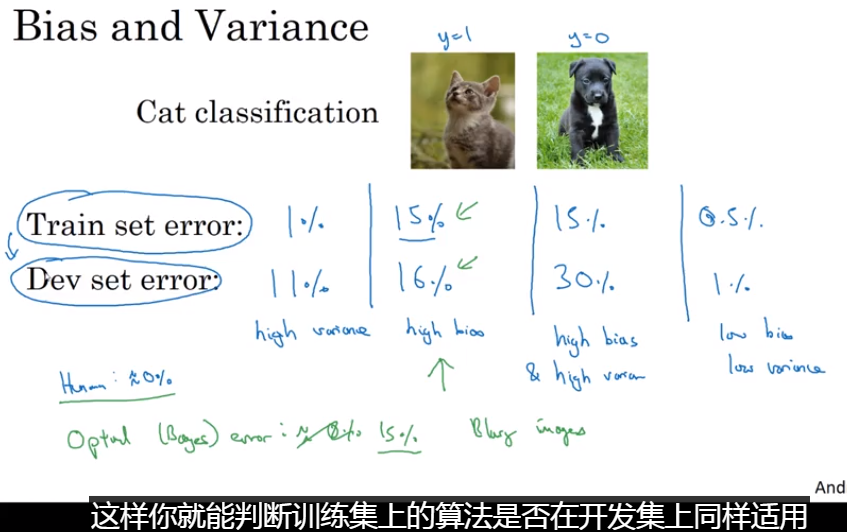 Bias and Variance
y=1 y=0
Cat classification
Train set error: 1% 15% 15% 0.5%
Dev set error: 11% 16% 30% 1%
high variance high bias high bias low bias
& high varian low variance
Human: ≈0%
Optimal (Bayes) error: ≈ 0% 15% Blurry images
And
这样你就能判断训练集上的算法是否在开发集上同样适用